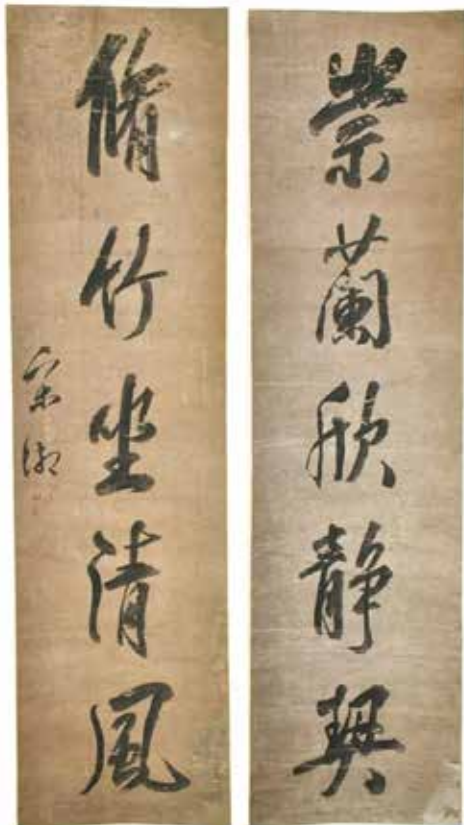 崇蘭欣静契
脩竹坐清風
宋湘